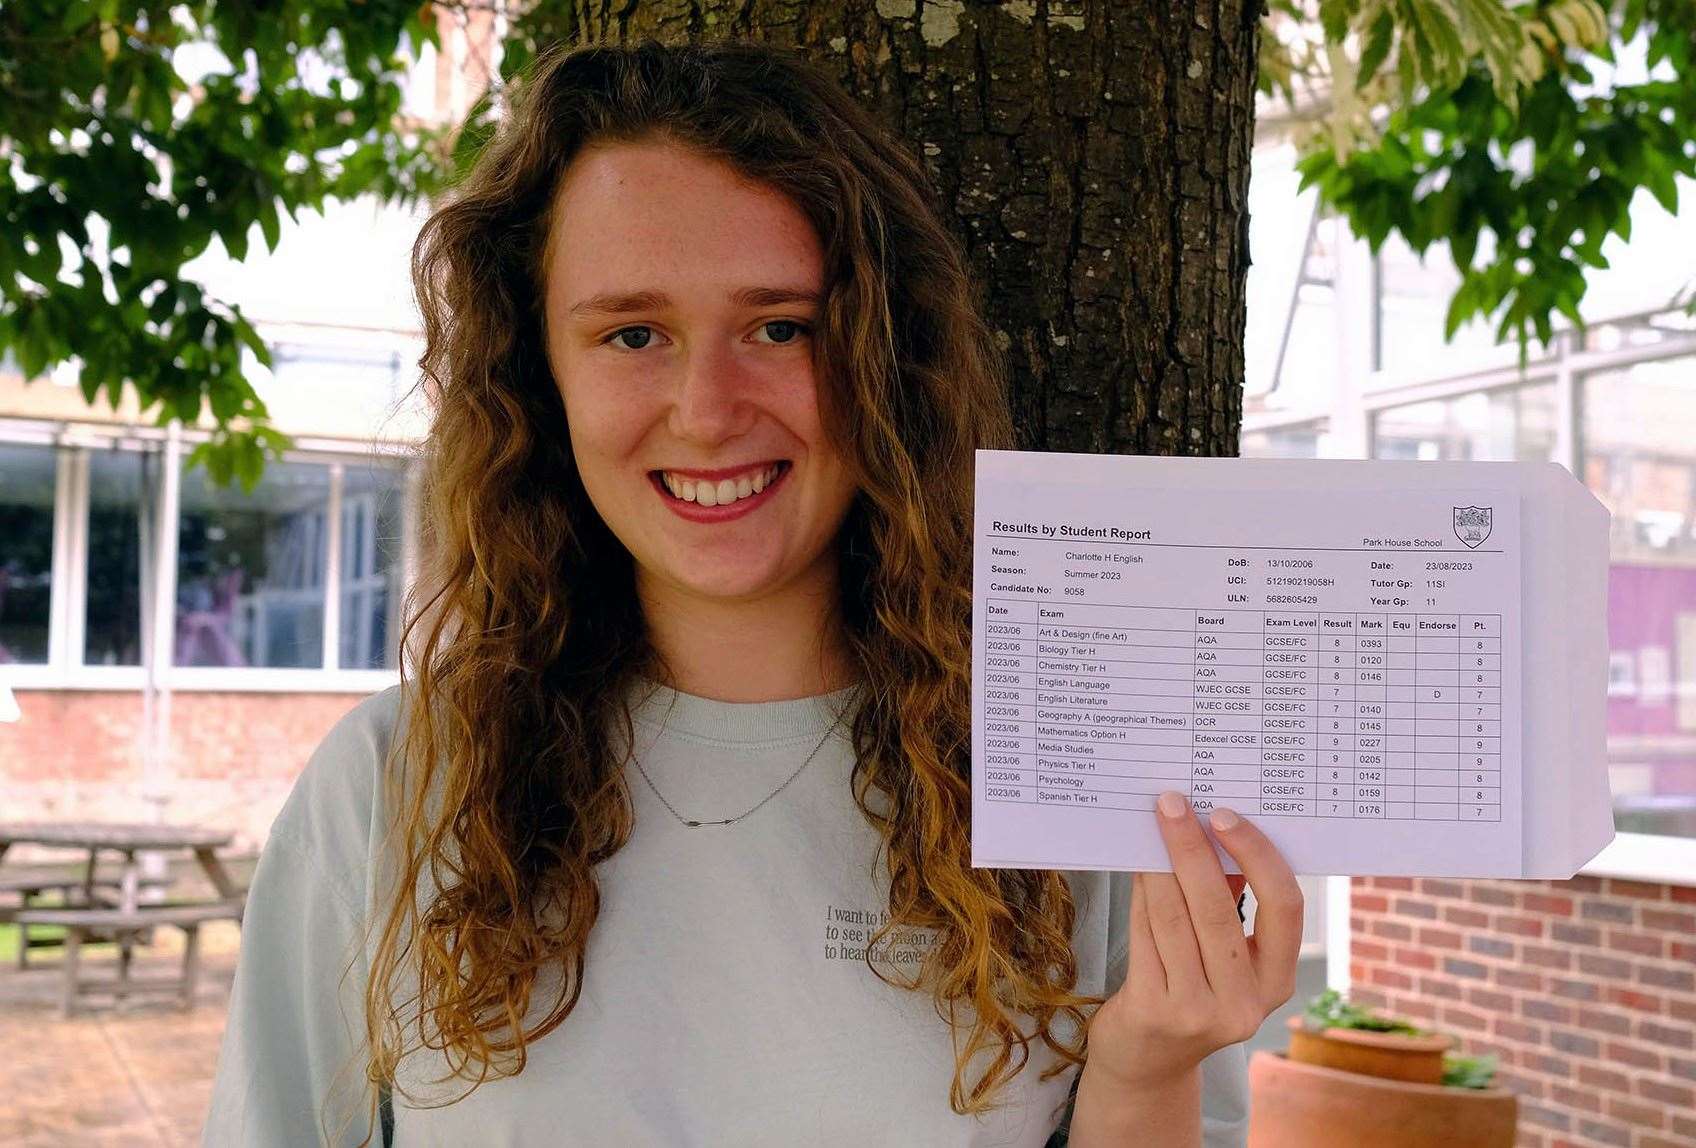 Results by Student Report
Park House School
Name: Charlotte H English DoB: 13/10/2006 Date: 23/08/2023
Season: Summer 2023 UCI: 512190219058H Tutor Gp: 11SI
Candidate No: 9058 ULN: 5682605429 Year Gp: 11
Date Exam Board Exam Level Result Mark Equ Endorse Pt.
2023/06 Art & Design (fine Art) AQA GCSE/FC 8 0393 8
2023/06 Biology Tier H AQA GCSE/FC 8 0120 8
2023/06 Chemistry Tier H AQA GCSE/FC 8 0146 8
2023/06 English Language WJEC GCSE GCSE/FC 7 D 7
2023/06 English Literature WJEC GCSE GCSE/FC 7 0140 7
2023/06 Geography A (geographical Themes) OCR GCSE/FC 8 0145 8
2023/06 Mathematics Option H Edexcel GCSE GCSE/FC 9 0227 9
2023/06 Media Studies AQA GCSE/FC 9 0205 9
2023/06 Physics Tier H AQA GCSE/FC 8 0142 8
2023/06 Psychology AQA GCSE/FC 8 0159 8
2023/06 Spanish Tier H AQA GCSE/FC 7 0176 7
I want to
to see the moon
to hear the leaves